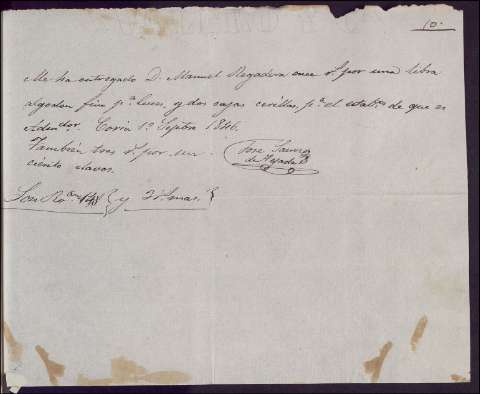 10.
Me ha entregado D. Manuel Regadera once rs. por una libra
algodon fino pa. luces, y dos cajas cerillas, pa. el estabto. de que es
Admdor. Coria 1o. Septbre 1846.
Tambien tres rs. por un
ciento clavos.
Jose
de Tejada
Son Ron. y 3 rs. mas.